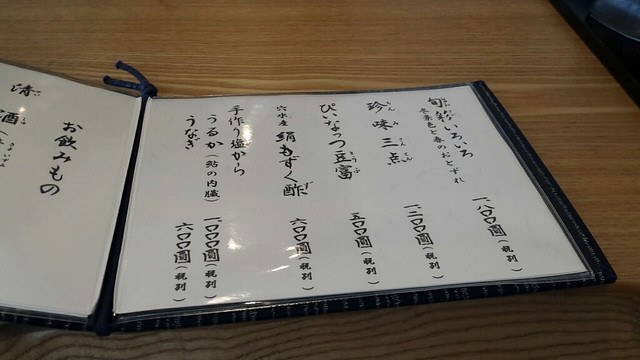 旬彩いろいろ
冬景色と春のおとずれ
一、八〇〇圓(税別)
珍味三点
一、二〇〇圓(税別)
ぴぃなっつ豆富
五〇〇圓(税別)
穴水産 絹もずく酢
六〇〇圓(税別)
手作り塩から
うるか(鮎の内臓)
一、〇〇〇圓(税別)
うなぎ
六〇〇圓(税別)
お飲みもの
清酒